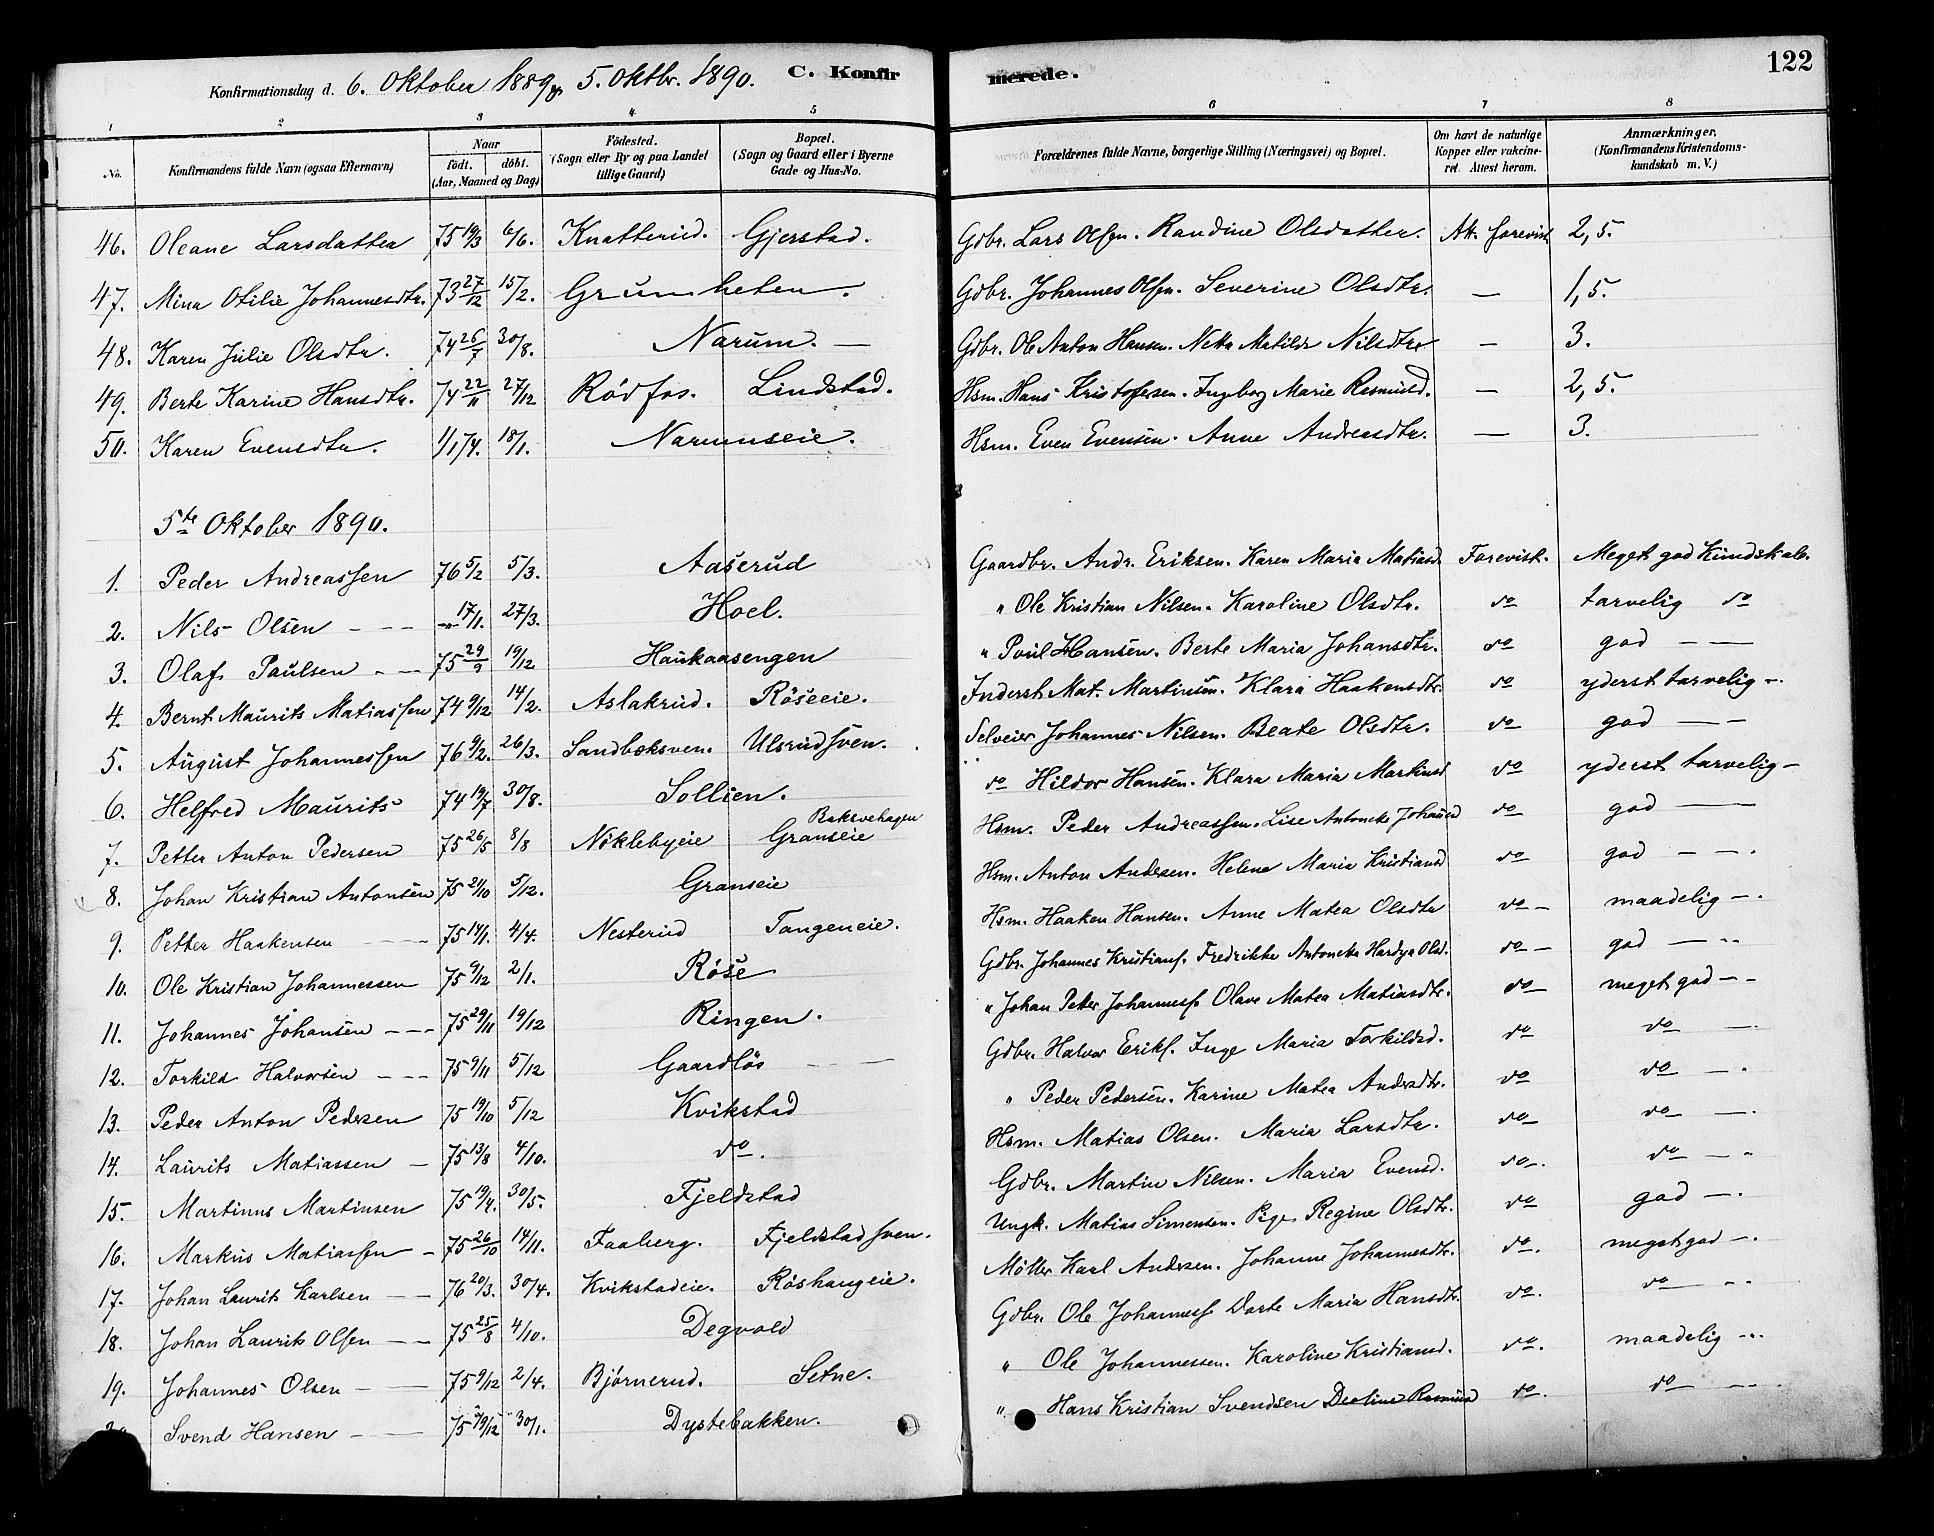 122
Konfirmationsdag d. 6. Oktober 1889 og 5. Oktbr. 1890. C. Konfirmerede.
1 2 3 4 5 6 7 8
No. Konfirmandens fulde Navn (ogsaa Efternavn) Naar født. døbt. (Aar, Maaned og Dag) Födested. (Sogn eller By og paa Landet tillige Gaard) Bopæl. (Sogn og Gaard eller i Byerne Gade og Hus-No. Forældrenes fulde Navne, borgerlige Stilling (Næringsvei) og Bopæl. Om havt de naturlige Kopper eller vakcineret. Attest herom. Anmærkninger. (Konfirmandens Kristendomskundskab m. V.)
46. Oleane Larsdatter 75 19/3 6/6. Knatterud. Gjerstad. Gdbr. Lars Olsen. Randine Olsdatter. Att. forevist 2,5.
47. Mina Otilie Johannesdtr. 73 27/12 15/2. Grümheten. Gdbr. Johannes Olsen. Severine Olsdtr. — 1,5.
48. Karen Julie Olsdtr. 74 26/7 30/8. Narum. — Gdbr. Ole Anton Hansen. Netta Matilde Nilsdtr — 3.
49. Berte Karine Hansdtr. 74 22/11 27/12 Rödfos. Lindstad. Hsm. Hans Kristofersen. Ingeborg Marie Rasmusd. — 2,5.
50. Karen Evensdtr. 1/1 74. 18/1. Narumseie. Hsm. Even Evensen. Anne Andreasdtr. — 3.
5te Oktober 1890.
1. Peder Andreassen 76 5/2 5/3. Aaserud Gaardbr. Andr. Eriksen. Karen Maria Matiasd. Forevist. Meget god Kundskab.
2. Nils Olsen — — — -"- 17/1. 27/3. Hoel. " Ole Kristian Nilsen. Karoline Olsdtr. do tarvelig do
3. Olaf Paulsen — — 75 29/9 19/12 Haukaasengen " Poul Hansen. Berte Maria Johansdtr. do god — —
4. Bernt Maurits Matiassen 74 9/12 14/2. Aslakrud. Röseeie. Inderst Mat. Martinsen. Klara Haakensdtr. do yderst tarvelig —
5. August Johannessen 76 9/2. 26/3. Sandbæksven. Ulsrudsven. Selveier Johannes Nilsen. Beate Olsdtr. do god — —
6. Helfred Maurits 74 19/7 30/8. Sollien. do Hildor Hansen. Klara Maria Martinsd do yderst tarvelig —
7. Petter Anton Pedersen 75 26/5 8/8 Nöklebyeie Baksvehagen Granseie Hsm. Peder Andreassen. Lise Antonette Johansd do god — —
8. Johan Kristian Antonsen 75 21/10 5/12. Granseie Hsm. Anton Andersen. Helene Maria Kristiansd do god — —.
9. Petter Haakensen — — 75 14/1. 4/4. Nesterud Tangeneie. Hsm. Haaken Hansen. Anne Matea Olsdtr do — maadelig —.
10. Ole Kristian Johannessen 75 9/12 2/1. Röse Gdbr. Johannes Kristians. Fredrikke Antonette Olsd. do — god — "
11. Johannes Johansen — — — 75 29/11 19/12 Ringen. " Johan Peter Johanness. Olave Matea Matiasdtr. do — meget god — —
12. Torkild Halvorsen — — — 75 9/11 5/12 Gaardløs Gdbr. Halvor Eriks. Inge Maria Torkildsd. do do —.
13. Peder Anton Pedersen 75 19/10 5/12 Kvikstad " Peder Pedersen. Karine Matea Andersdtr. do do —.
14. Laurits Matiassen — 75 13/8 4/10. do. Hsm. Matias Olsen. Maria Larsdtr. do do —.
15. Martinus Martinsen 75 19/4. 30/5. Fjeldstad Gdbr. Martin Nilsen. Maria Evensd. do. do — "
16. Markus Matiassen — 75 26/10 14/11. Faaberg. Fjeldstadsven. Ungk. Matias Simensen. Pige Regine Olsdtr. do god —.
17. Johan Laurits Karlsen — — 76 20/3. 30/4. Kvikstadeie. Röshaugeie. Møller Karl Andersen. Johanne Johannesdtr. do. meget god —.
18. Johan Laurits Olsen — — 75 25/8 4/10. Degvold Gdbr. Ole Johanness Dorte Maria Hansdtr. do. do — "
19. Johannes Olsen — — 75 9/12 2/4. Bjørnerud. Setne. " Ole Johannessen. Karoline Kristiansd. do. maadelig —
Svend Hansen — — 75 29/12 30/1. Dystebakken. " Hans Kristian Svendsen Rasmusd do. do — —